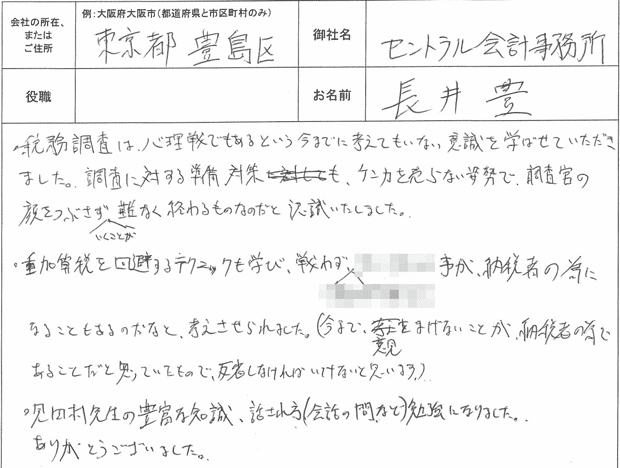 会社の所在、
または
ご住所
例:大阪府大阪市(都道府県と市区町村のみ)
東京都 豊島区
御社名
セントラル会計事務所
役職
お名前
長井 豊
・税務調査は、心理戦でもあるという今までに考えてもいない意識を学ばせていただき
ました。調査に対する準備対策に対しても、ケンカを売らない姿勢で、調査官の
顔をつぶさず難なく終わるものなのだと認識いたしました。
いくことが
・重加算税を回避するテクニックも学び、戦わず、 事が、納税者の為に
なることもあるのだなと、考えさせられました。(今まで、をまげないことが、納税者の為で
意見
あることだと思っていたもので、反省しなければいけないと思います。)
・児田村先生の豊富な知識、話され方(会話の間など)勉強になりました。
ありがとうございました。